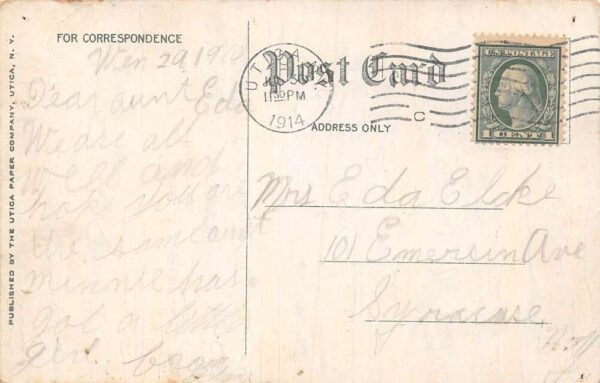 FOR CORRESPONDENCE
Wen 29 191
Dear aunt Eda
We are all
well and
hope you are
the same aunt
minnie has
got a little
girl
Post Card
ADDRESS ONLY
UTICA
11 30 PM
1914
C
U.S. POSTAGE
1 CENT 1
Mrs Eda Elke
101 Emersin Ave
Syracuse
N.Y
PUBLISHED BY THE UTICA PAPER COMPANY, UTICA, N. Y.